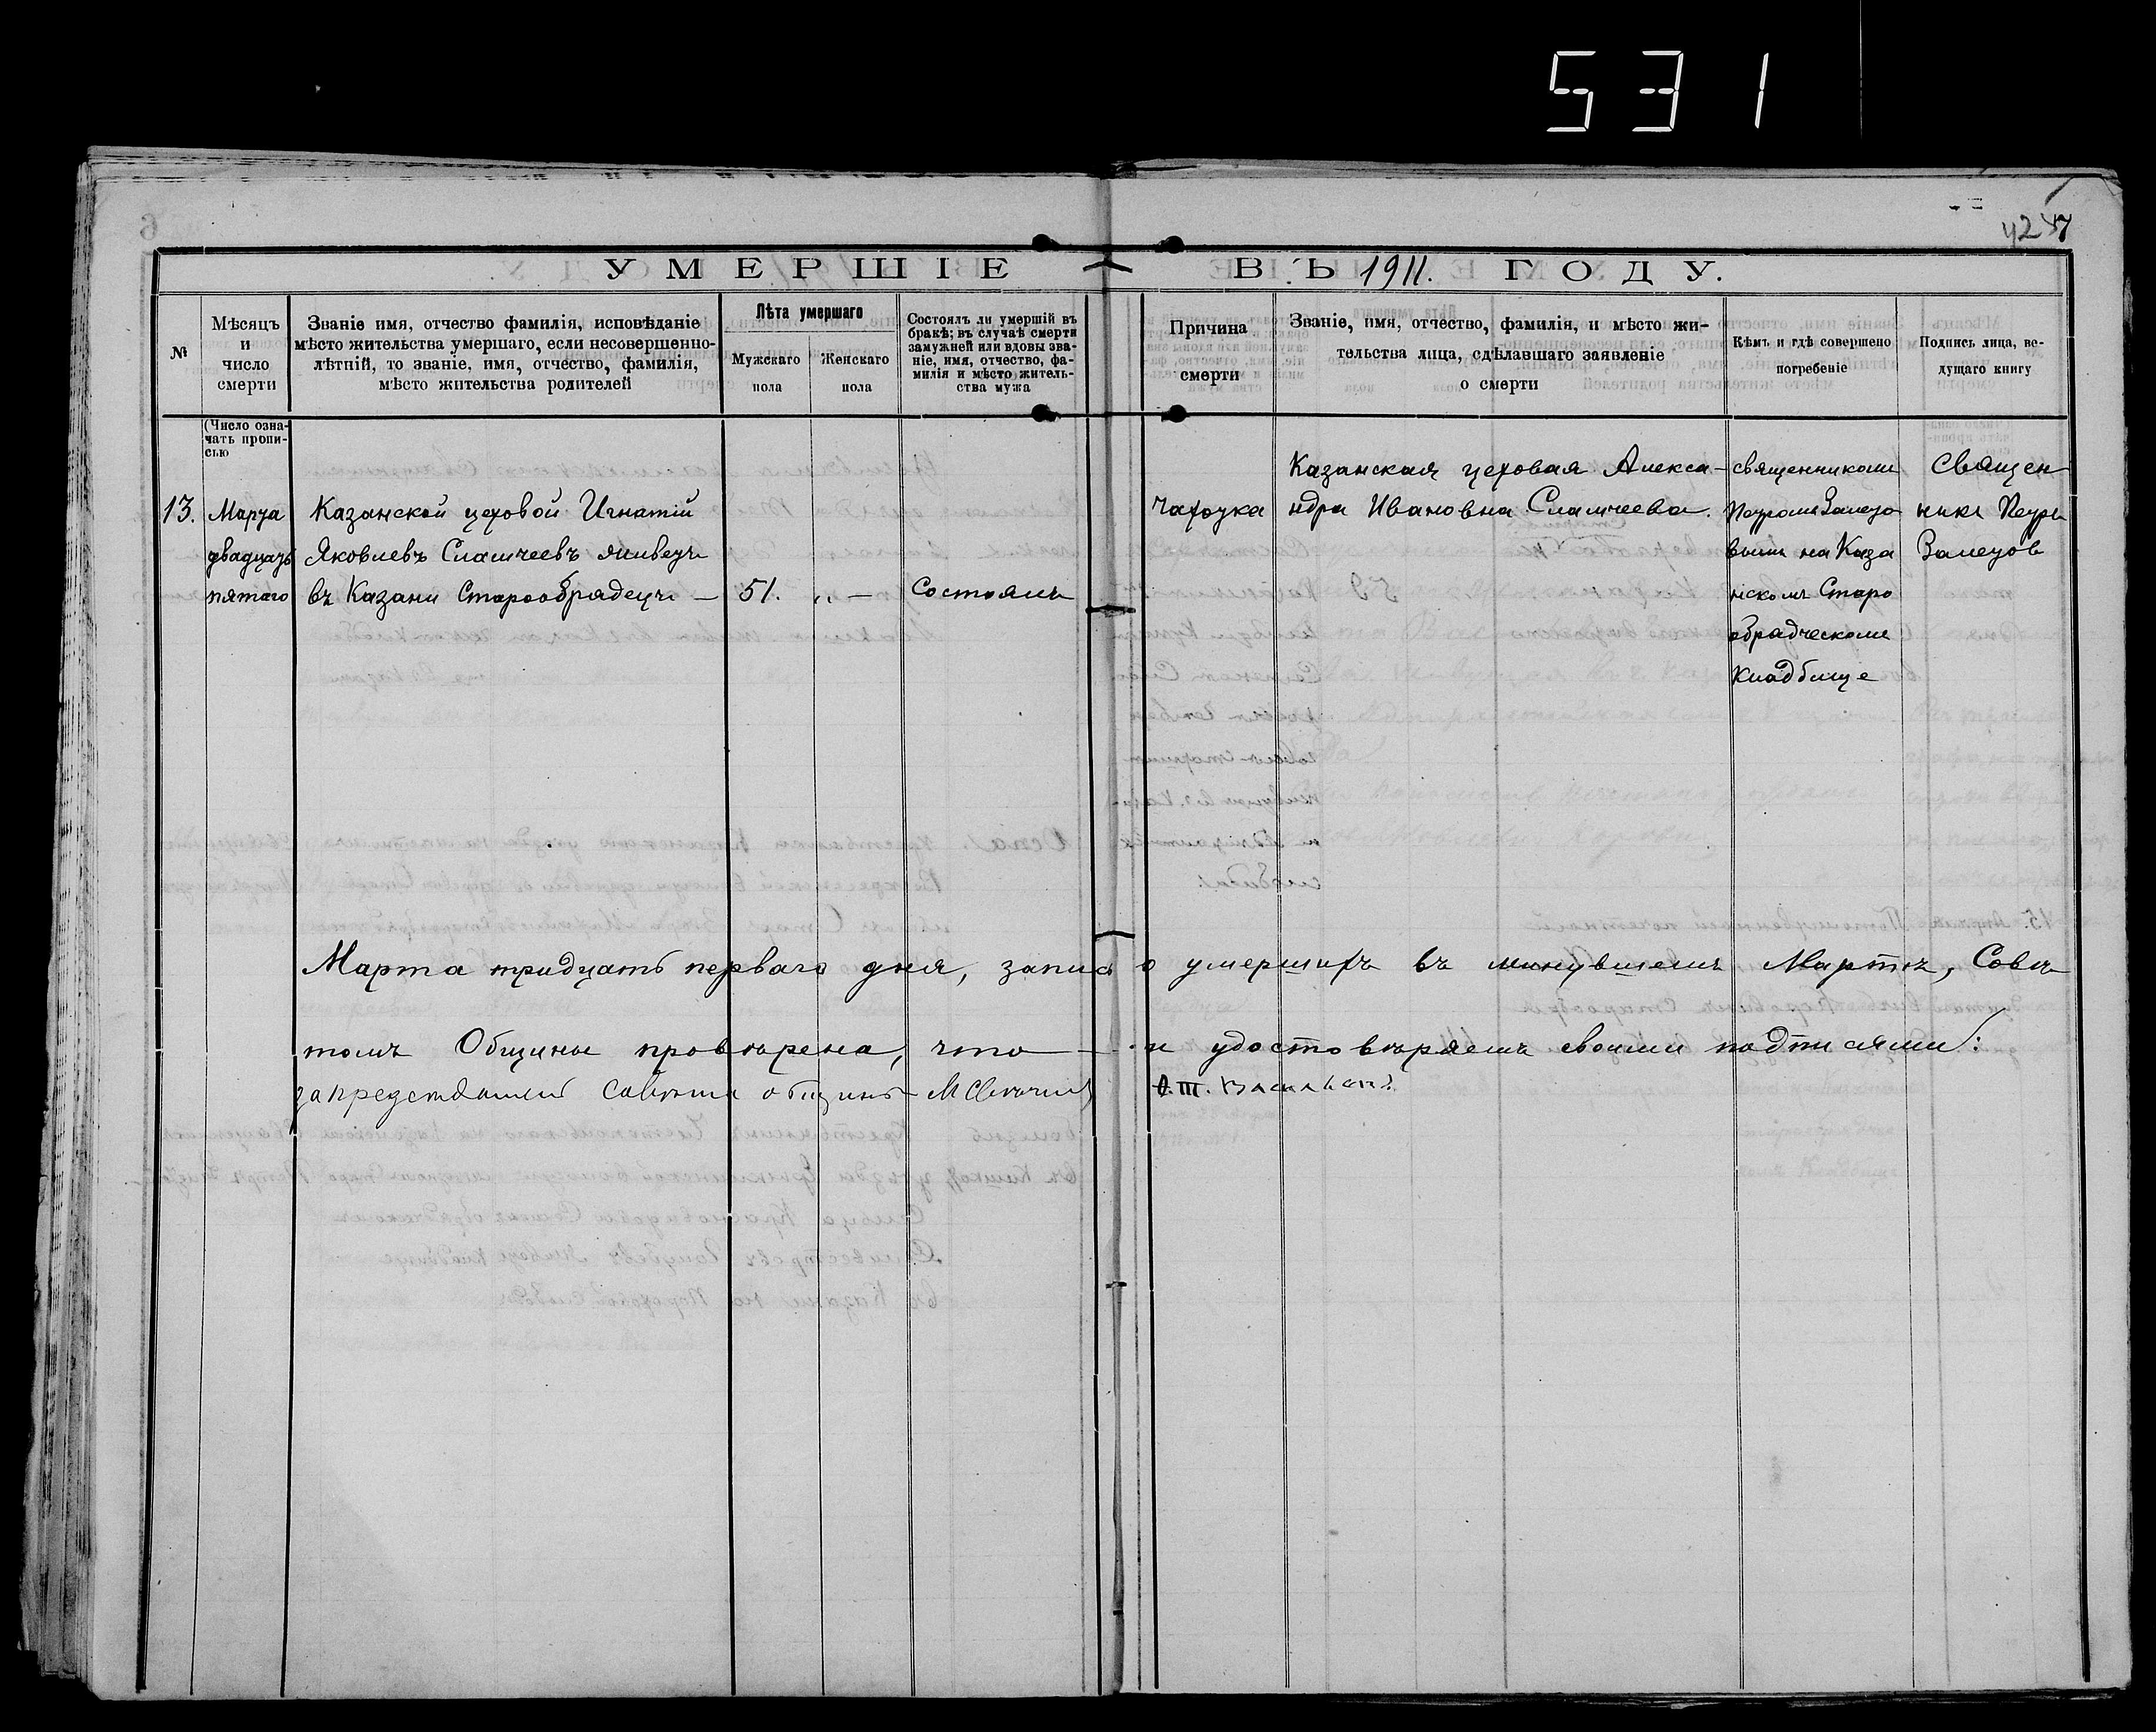 531
УМЕРШІЕ ВЪ 1911. ГОДУ.
№
Мѣсяцъ
и
число
смерти
Званіе имя, отчество фамилія, исповѣданіе
мѣсто жительства умершаго, если несовершенно-
лѣтній, то званіе, имя, отчество, фамилія,
мѣсто жительства родителей
Лѣта умершаго
Мужскаго
пола
Женскаго
пола
Состоялъ ли умершій въ
бракѣ; въ случаѣ смерти
замужней или вдовы зва-
ніе, имя, отчество, фа-
милія и мѣсто житель-
ства мужа
Причина
смерти
Званіе, имя, отчество, фамилія, и мѣсто жи-
тельства лица, сдѣлавшаго заявленіе
о смерти
Кѣмъ и гдѣ совершено
погребеніе
Подпись лица, ве-
дущаго книгу
(Число озна-
чать пропи-
сью
13.
Марта
двадцать
пятаго
Казанской цеховой Игнатій
Яковлевъ Сламчеевъ живетъ
въ Казани Старообрядецъ —
51.
„ —
Состоялъ
Чахотка
Казанская цеховая Алекса-
ндра Ивановна Сламчеева.
священникомъ
Петромъ Залето
вымъ на Каза
нскомъ Старо
обрадческомъ
Кладбище
Священ
никъ Петръ
Залетов
Марта тридцать перваго дня, запись о умершихъ въ минувшемъ Мартѣ, Совѣ
томъ Общины провѣрена, что — и удостовѣряемъ своими подписями:
за председателя совета общины